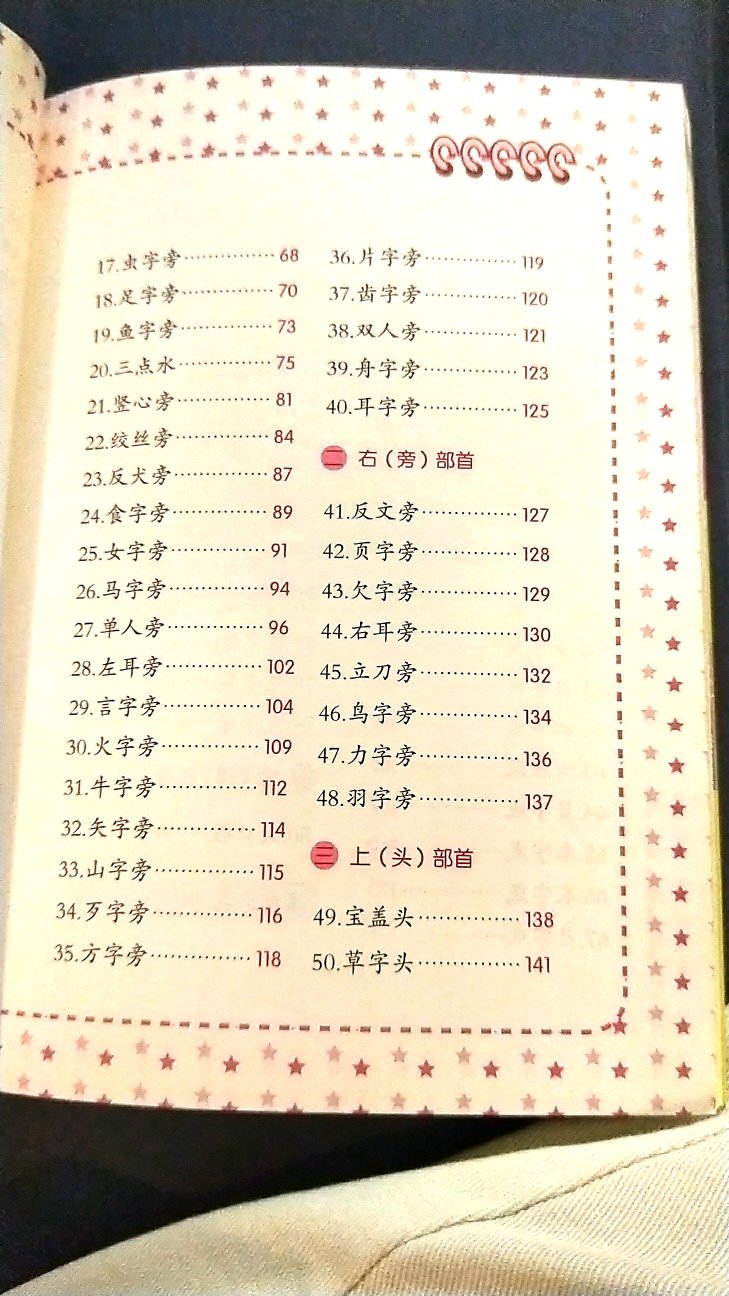 17.虫字旁……………68
18.足字旁……………70
19.鱼字旁……………73
20.三点水……………75
21.竖心旁……………81
22.绞丝旁……………84
23.反犬旁……………87
24.食字旁……………89
25.女字旁……………91
26.马字旁……………94
27.单人旁……………96
28.左耳旁……………102
29.言字旁……………104
30.火字旁……………109
31.牛字旁……………112
32.矢字旁……………114
33.山字旁……………115
34.歹字旁……………116
35.方字旁……………118
36.片字旁……………119
37.齿字旁……………120
38.双人旁……………121
39.舟字旁……………123
40.耳字旁……………125
二 右（旁）部首
41.反文旁……………127
42.页字旁……………128
43.欠字旁……………129
44.右耳旁……………130
45.立刀旁……………132
46.鸟字旁……………134
47.力字旁……………136
48.羽字旁……………137
三 上（头）部首
49.宝盖头……………138
50.草字头……………141